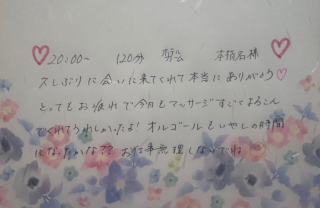 20:00〜 120分 本指名様
久しぶりに会いに来てくれて本当にありがとう♡
とってもお疲れで今日もマッサージすごくよろこん
でくれてうれしかったよ! オルゴールもいやしの時間
になったかな?? お仕事無理しないでね